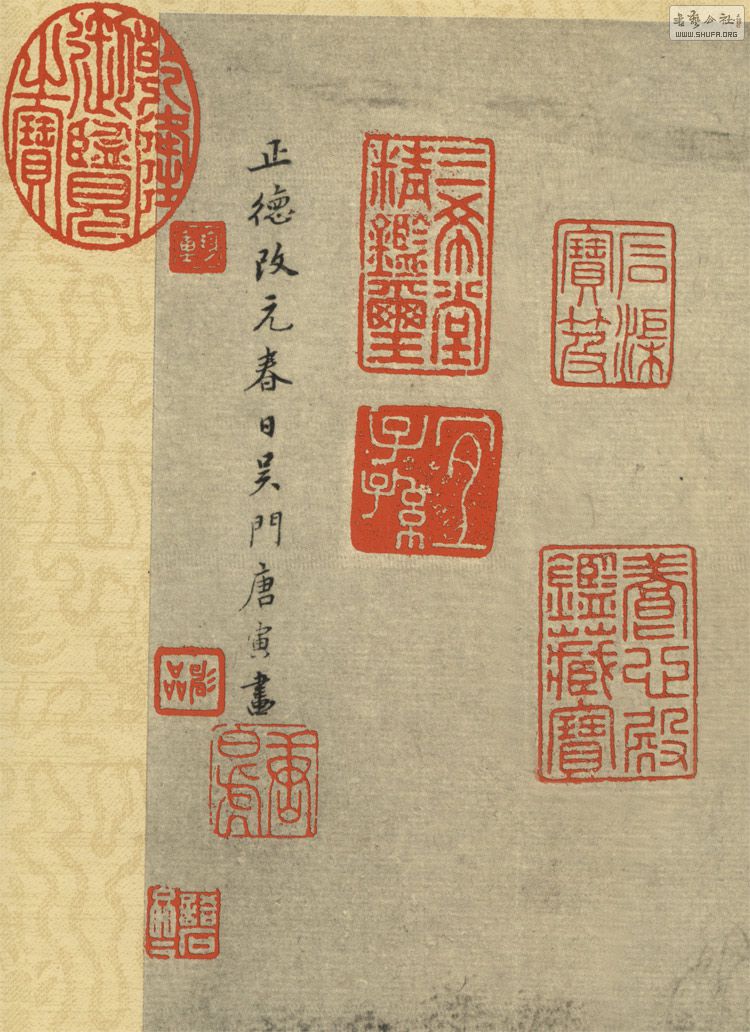 书艺公社
WWW.SHUFA.ORG
石渠寶笈
養心殿鑑藏寶
三希堂精鑑璽
宜子孫
正德改元春日吳門唐寅畫
唐白虎
乾隆御覽之寶